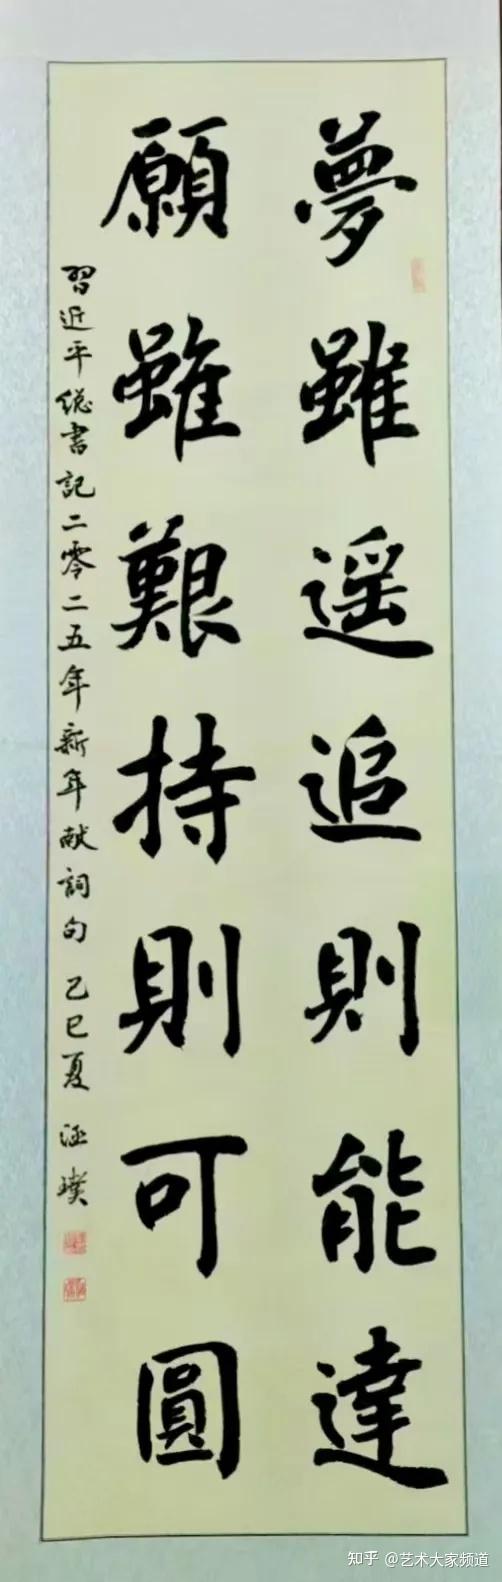 夢雖遥追則能達
願雖艱持則可圓
習近平總書記二零二五年新年献詞句 乙巳夏 汪璞
知乎 @艺术大家频道